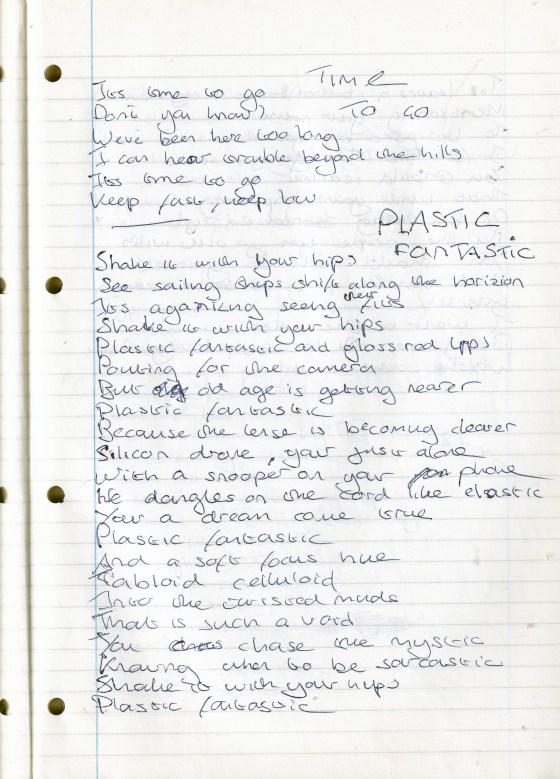 TIME
TO GO
Its time to go
Dont you know?
Weve been here too long
I can hear trouble beyond the hills
Its time to go
Keep fast, keep low
PLASTIC
FANTASTIC
Shake it with your hips
See sailing ships shift along the horizion
Its agonizing seeing their
Shake it with your hips
Plastic fantastic and gloss red lips
Pouting for the camera
But old age is getting nearer
Plastic fantastic
Because the lense is becoming clearer
Silicon drone, your just alone
With a snooper on your phone
He dangles on the cord like elastic
Your a dream come true
Plastic fantastic
And a soft focus hue
Tabloid celluloid
Into the twisted minds
That is such a void
You chase the mystic
Knowing when to be sarcastic
Shake it with your hips
Plastic fantastic